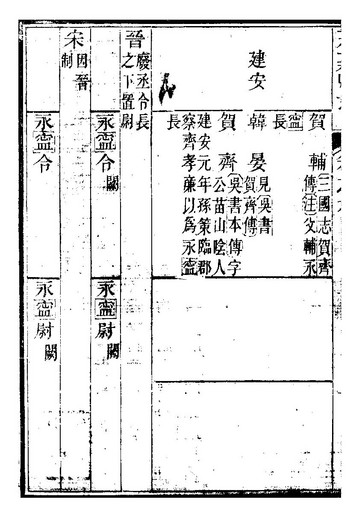 賀輔三國志賀齊
傳注父輔永
寧長
建安
韓晏見吳書
賀齊傳
賀齊吳書本傳字
公苗山陰人
建安元年孫策臨郡
察齊孝廉以為永寧
長
晉廢丞令長
之下置尉
永寧令闕
永寧尉闕
宋因晉
制
永寧令
永寧尉闕